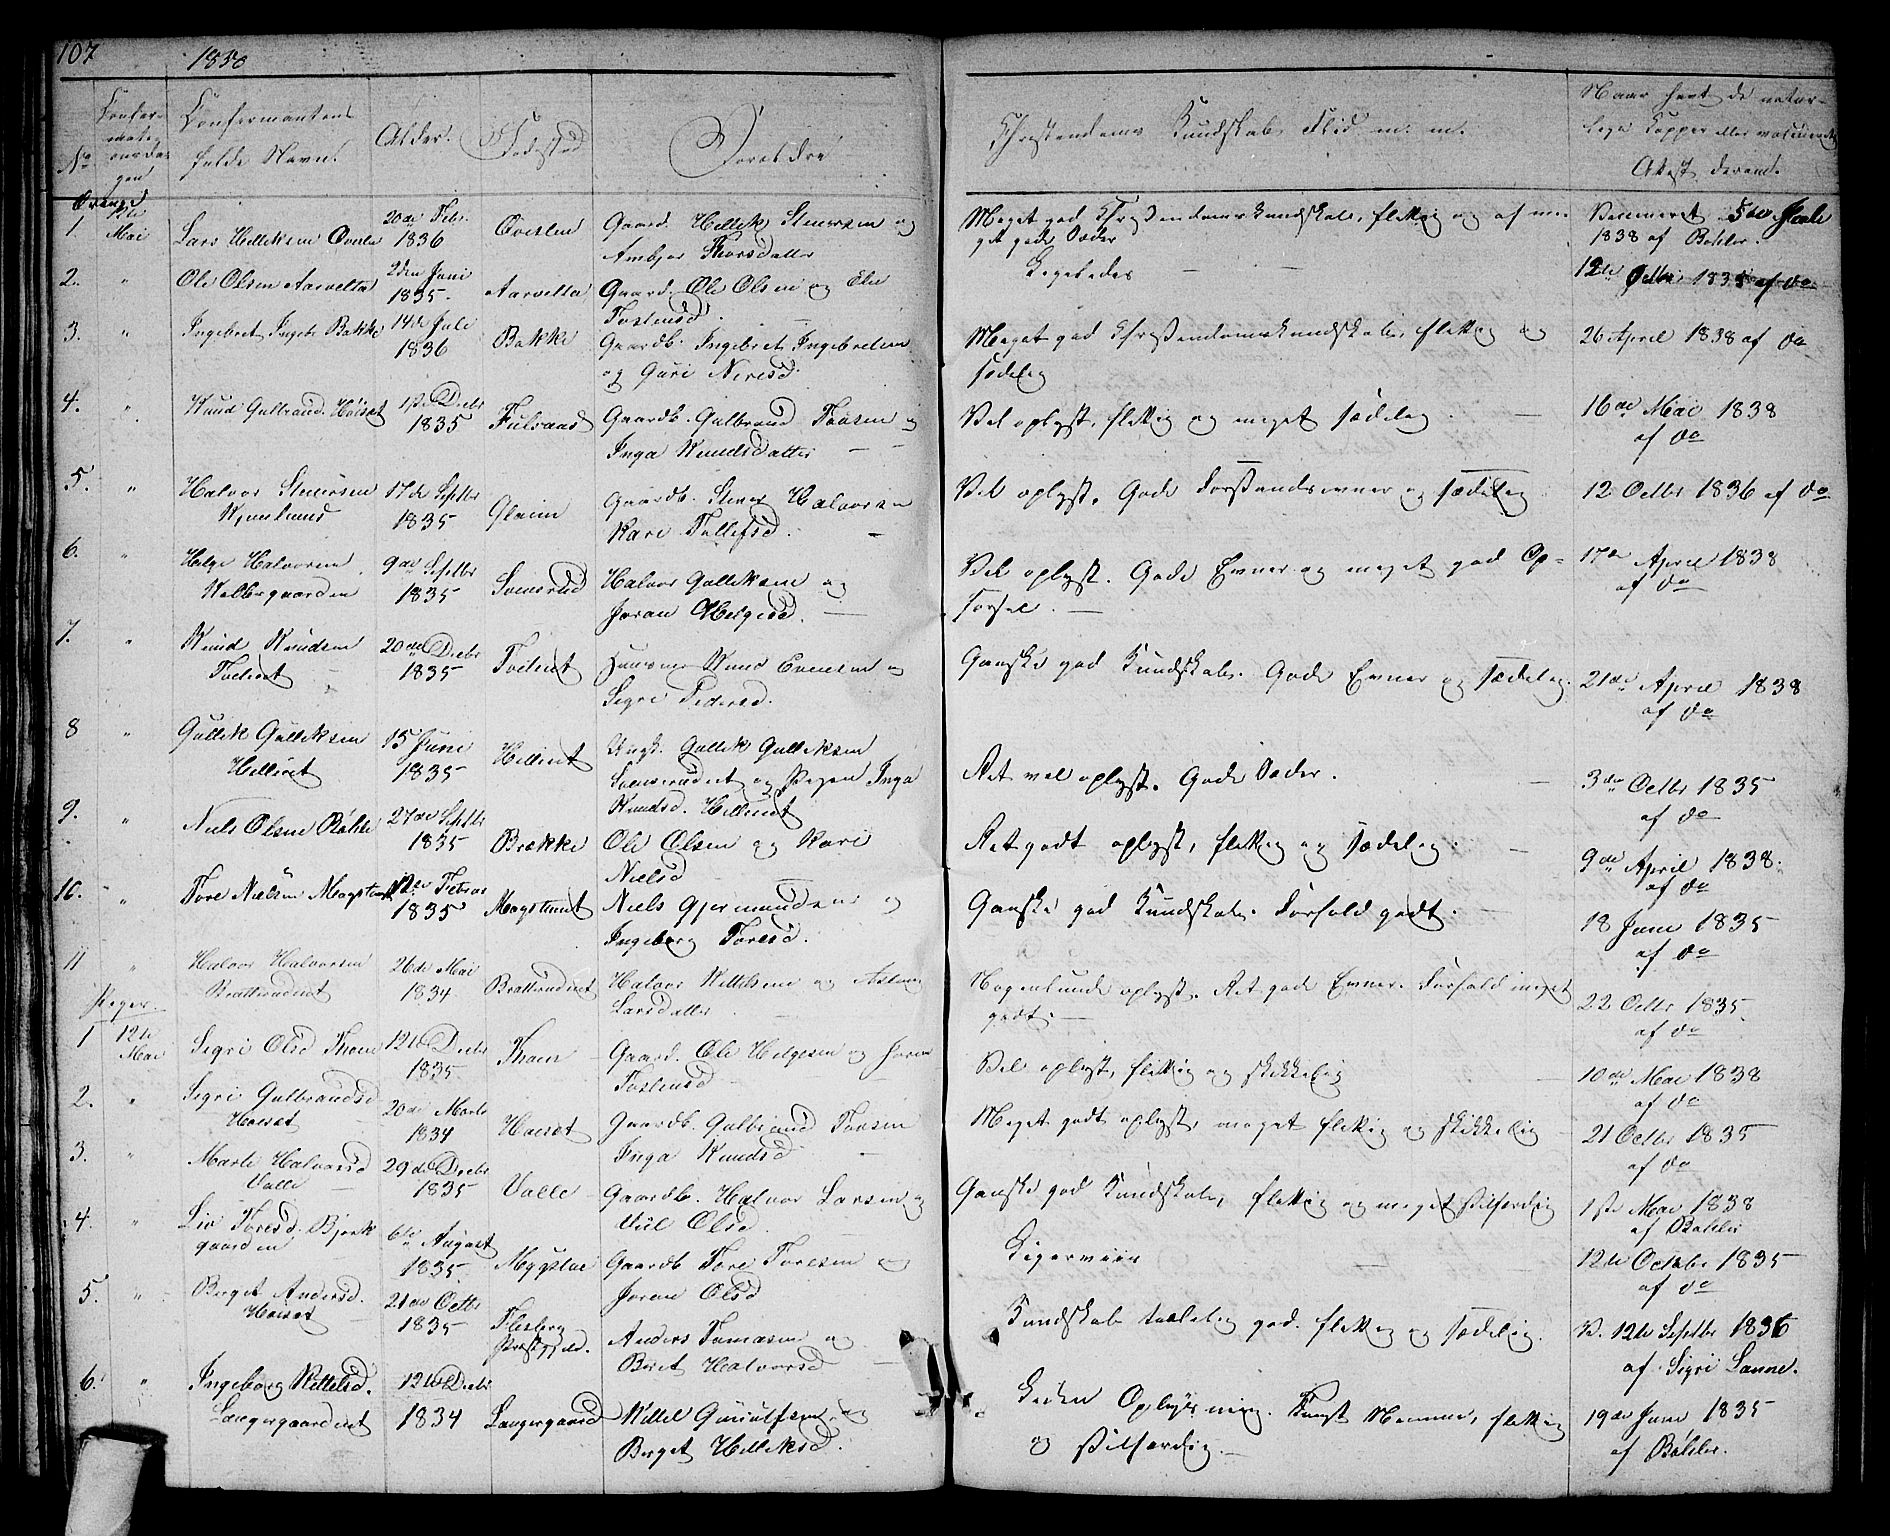 107
1850
No
Confirmantens
fulde Navn.
Alder.
Fødested
Forældre
Christendoms Kundskab, Flid m. m.
Naar havt de natur-
lige Kopper eller vaccineret
Attest derom.
Drenge
1 12te Mai Lars Helleksen Øvrslen 20de Febr. 1836 Øverlen Gaard. Hellek Steensen og
Ambjør Thorsdatter
Meget god Christendomskundskab, flittig og af me-
get gode Sæder
Vaccineret 5te Juli
1838 af Bøhler.
2. " Ole Olsen Aarvelta 2den Juni 1835. Aarvelta Gaard. Ole Olsen og Eli
Tostensd.
Ligeledes — —
12te Octbr 1835 af do
3. " Ingebret Ingebr Bakke 14de Juli 1836 Bakke Gaardb. Ingebret Ingebretsen
og Guri Niresd.
Meget god Christendomskundskab, flittig og
sædelig
26 April 1838 af do
4. " Knud Gulbrand. Høiset 1ste Decbr 1835 Fulsaas Gaardb. Gulbrand Toresen og
Inga Knudsdatter —
Vel oplyst, flittig og meget sædelig. —
16de Mai 1838
af do
5. " Halvor Steensen 17de Septbr 1835 Glaim Gaardb. Steen Halvorsen
Kari Tollefsd. —
Vel oplyst. Gode Forstandsevner og sædelig
12 Octbr 1836 af do
6. " Helge Halvorsen
Kolbergaarden 9de Septbr 1835 Svensrud Halvor Gulliksen og
Joran Helgesd. —
Vel oplyst. Gode Evner og meget god Op-
førsel. —
17de April 1838
af do
7. " Knud Knudsen
Toeneiet 20de Decbr 1835 Toeneiet Huusm. Knud Evensen og
Sigri Pedersd.
Ganske god Kundskab. Gode Evner og sædelig.
21de April 1838
af do
8 " Gullik Gulliksen
Hellieiet 15 Juni 1835 Hellieiet Ungk. Gullik Gulliksen
Svensrudeiet og Pigen Inga
Knudsd. Hellieiet
Ret vel oplyst. Gode Sæder. —
3die Octbr 1835
af do
9. " Niels Olsen Bakke 27de Septbr 1835 Brække Ole Olsen og Kari
Nielsd
Ret godt oplyst, flittig og sædelig. —
9de April 1838.
af do
10. " Tore Nielsen Mogstueiet 12te Februar 1835 Mogstueiet Niels Gjermundsen og
Ingeborg Toresd.
Ganske god Kundskab. Forhold godt. —
18 Juni 1835
af do
11 " Halvor Halvorsen
Bratterudeiet 26de Mai 1834 Bratterudeiet Halvor Kittelsen og
Larsdatter
Nogenlunde oplyst. Ret gode Evner. Forhold meget
godt. —
22 Octbr 1835.
af do
Piger.
1 12te Mai Sigri Olsd Thom 12te Decbr 1835 Thom Gaard. Ole Helgesen og Joran
Tostensd
Vel oplyst, flittig og skikkelig
10de Mai 1838
af do
2. " Sigri Gulbrandsd
Høiset 20de Marts 1834 Høiset Gaardb. Gulbrand Toresen
Inga Knudsd —
Meget godt oplyst, meget flittig og skikkelig —
21 Octbr 1835
af do
3. " Marte Halvorsd
Valle — 29de Decbr 1835 Valle Gaardb. Halvor Larsen og
Olsd.
Ganske god Kundskab, flittig og meget stilfærdig
1ste Mai 1838
af Bøhler
4. " Liv Toresd. Bjerk
gaarden 6te August 1835. Mygstue Gaardb Tore Toresen og
Joran Olsd
12te October 1835
af do
5. " Berget Andersd.
Høiset 21de Octbr 1835 Flesberg
Præstegjeld. Anders Tomasen og
Beret Halvorsd —
Kundskab taalelig god. flittig og sædelig.
V. 12te Septbr 1836
af. Sigri Lunne.
6. " Ingeborg Kittelsd.
Langergaardeiet 12te Decbr 1834 Langergaard Kittel Gunulfsen og
Berget Helleksd.
Liden Oplysning. Svag Nemme, flittig
og stilfærdig. —
19de Juni 1835
af Bøhler.